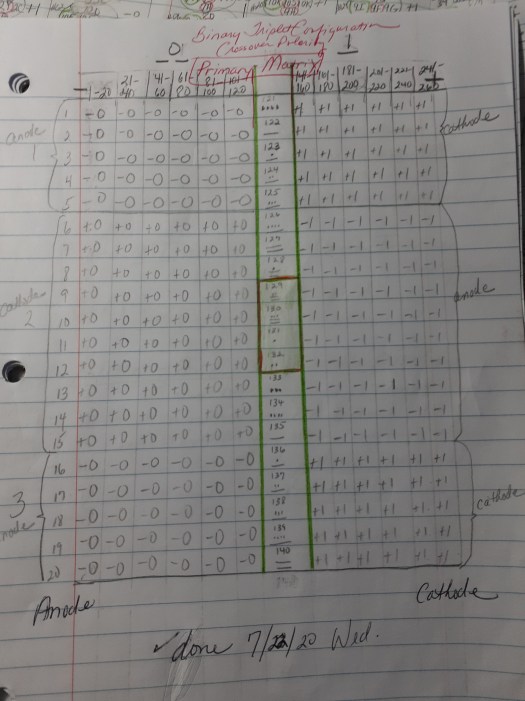 Binary Triplet Configuration
Crossover Polarity
0 1
Primary Matrix
1-20 21-40 41-60 61-80 81-100 101-120 141-160 161-180 181-200 201-220 221-240 241-260
anode 1
cathode
1 -0 -0 -0 -0 -0 -0 121 +1 +1 +1 +1 +1 +1
2 -0 -0 -0 -0 -0 -0 122 +1 +1 +1 +1 +1 +1
3 -0 -0 -0 -0 -0 -0 123 +1 +1 +1 +1 +1 +1
4 -0 -0 -0 -0 -0 -0 124 +1 +1 +1 +1 +1 +1
5 -0 -0 -0 -0 -0 -0 125 +1 +1 +1 +1 +1 +1
cathode 2
anode
6 +0 +0 +0 +0 +0 +0 126 -1 -1 -1 -1 -1 -1
7 +0 +0 +0 +0 +0 +0 127 -1 -1 -1 -1 -1 -1
8 +0 +0 +0 +0 +0 +0 128 -1 -1 -1 -1 -1 -1
9 +0 +0 +0 +0 +0 +0 129 -1 -1 -1 -1 -1 -1
10 +0 +0 +0 +0 +0 +0 130 -1 -1 -1 -1 -1 -1
11 +0 +0 +0 +0 +0 +0 131 -1 -1 -1 -1 -1 -1
12 +0 +0 +0 +0 +0 +0 132 -1 -1 -1 -1 -1 -1
13 +0 +0 +0 +0 +0 +0 133 -1 -1 -1 -1 -1 -1
14 +0 +0 +0 +0 +0 +0 134 -1 -1 -1 -1 -1 -1
15 +0 +0 +0 +0 +0 +0 135 -1 -1 -1 -1 -1 -1
3
cathode
16 -0 -0 -0 -0 -0 -0 136 +1 +1 +1 +1 +1 +1
17 -0 -0 -0 -0 -0 -0 137 +1 +1 +1 +1 +1 +1
18 -0 -0 -0 -0 -0 -0 138 +1 +1 +1 +1 +1 +1
19 -0 -0 -0 -0 -0 -0 139 +1 +1 +1 +1 +1 +1
20 -0 -0 -0 -0 -0 -0 140 +1 +1 +1 +1 +1 +1
Anode Cathode
✓done 7/22/20 Wed.